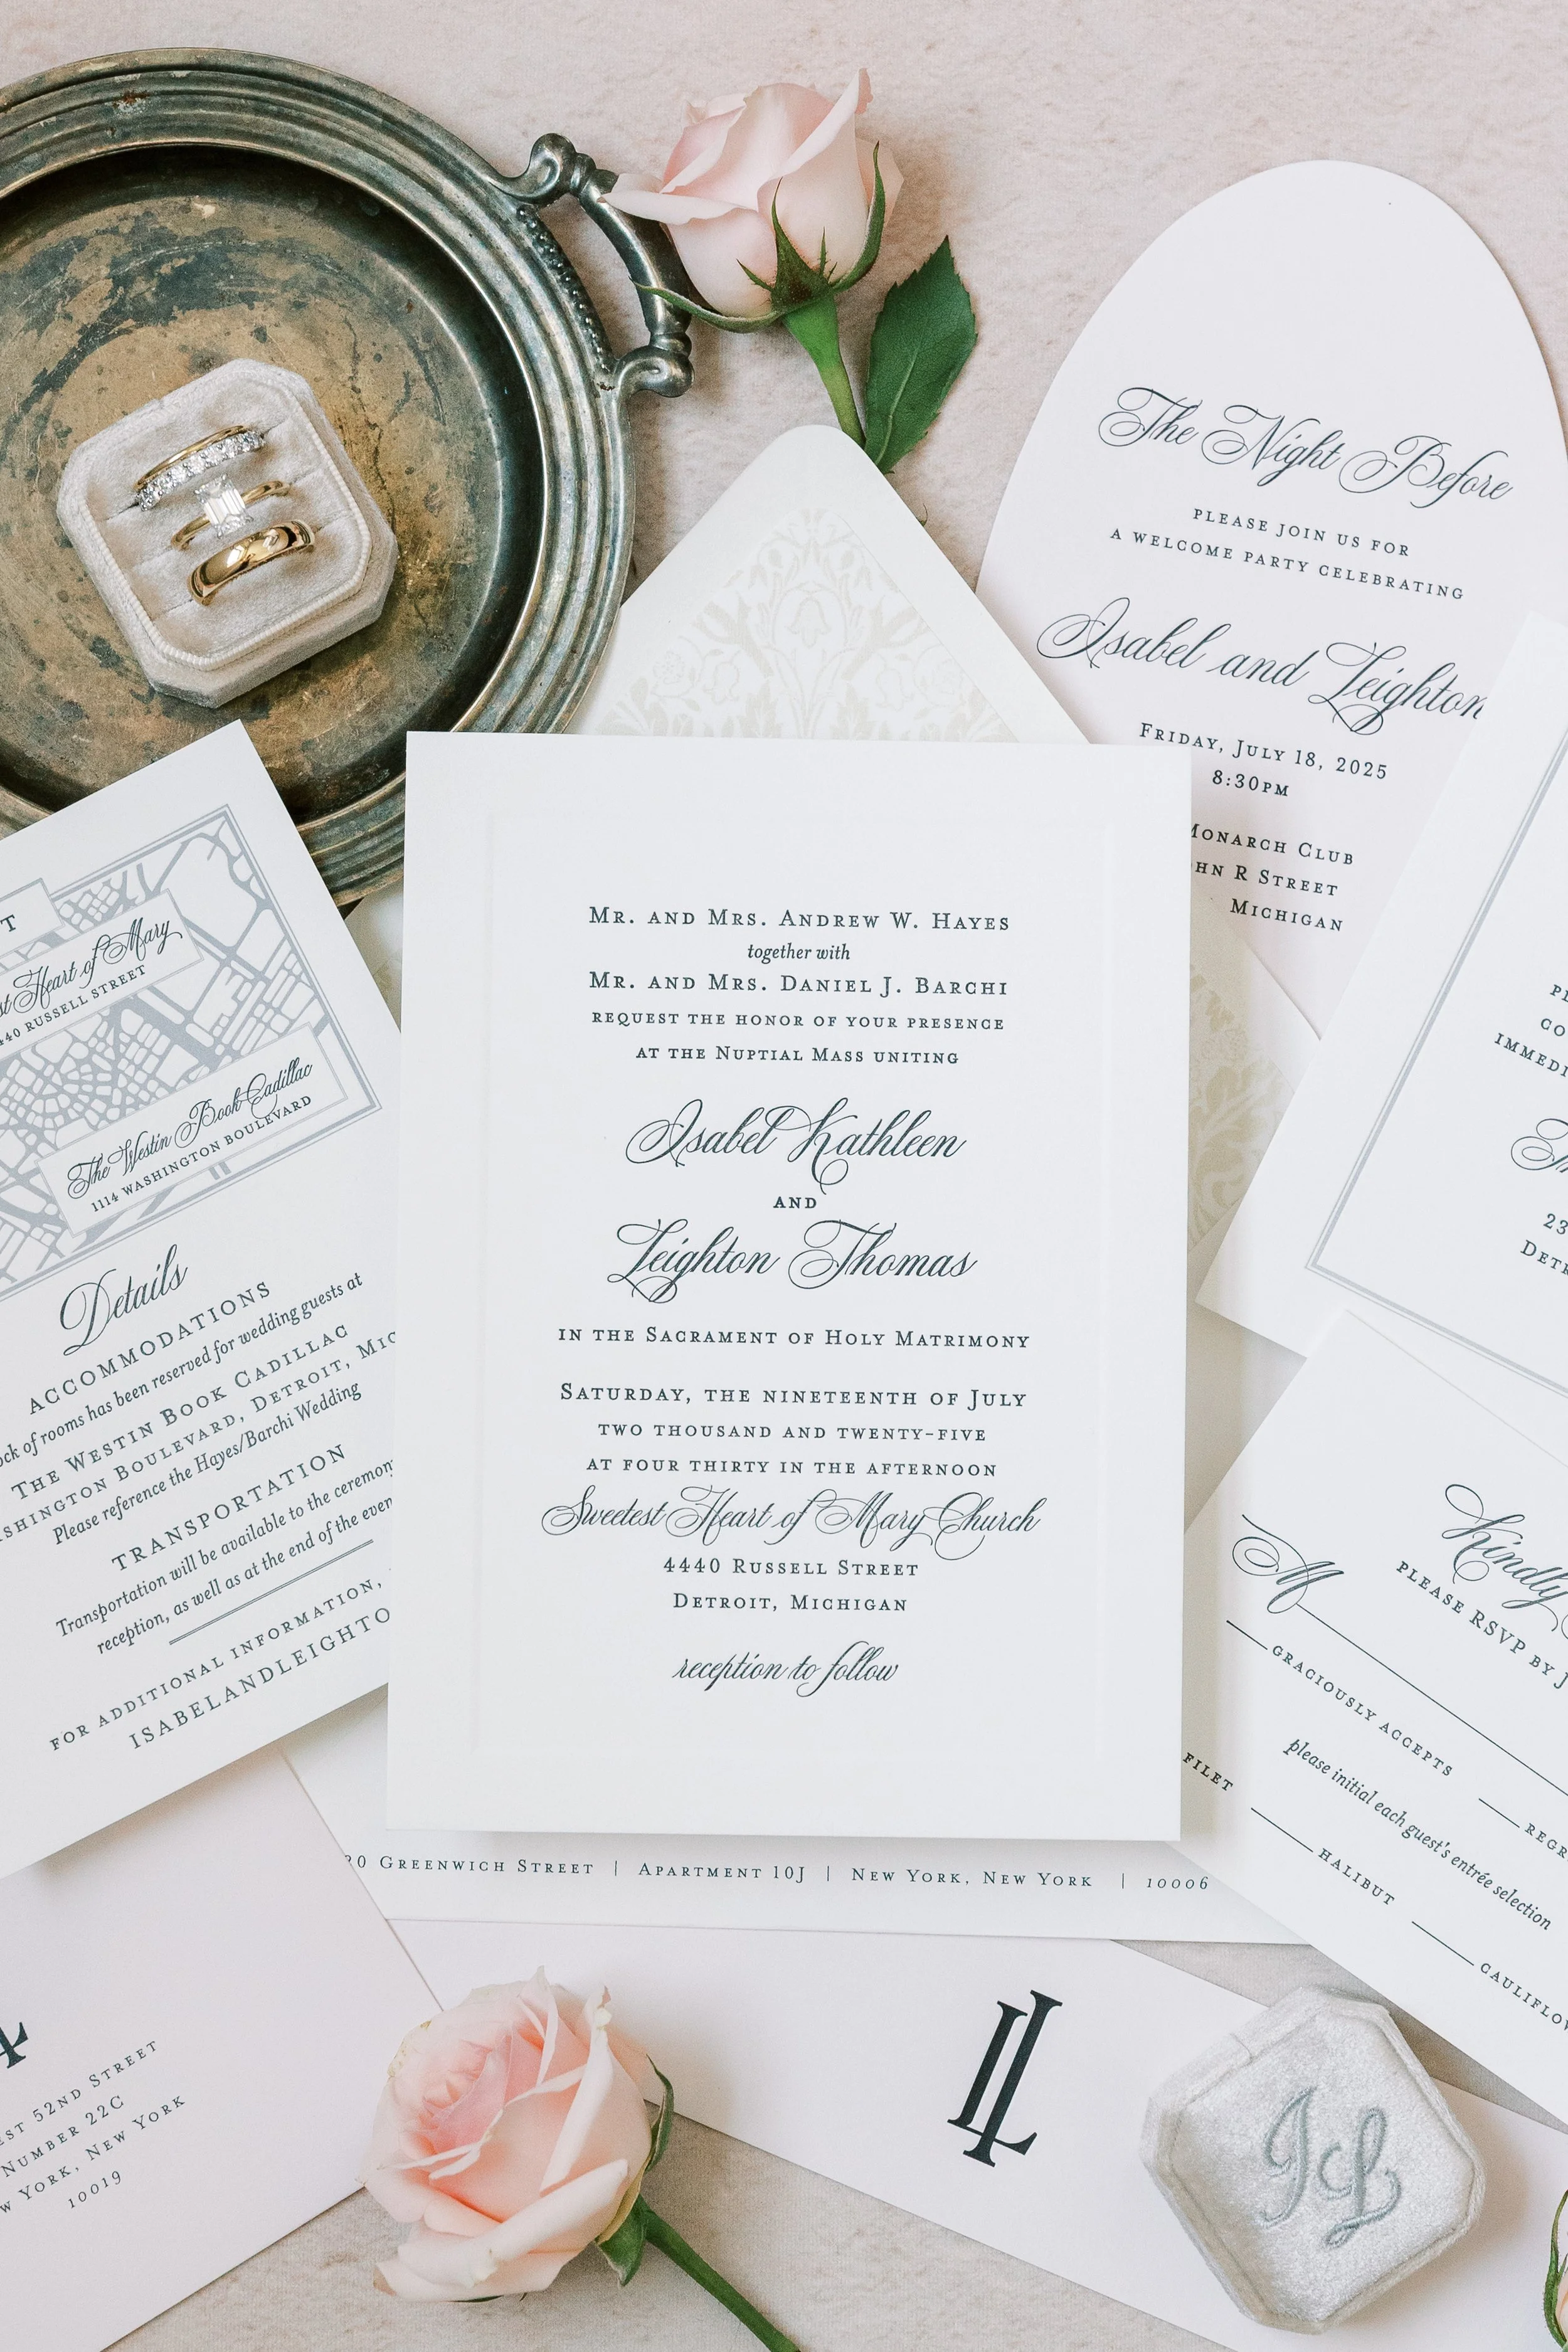 The Night Before
PLEASE JOIN US FOR
A WELCOME PARTY CELEBRATING
Isabel and Leighton
FRIDAY, JULY 18, 2025
8:30PM
MONARCH CLUB
R STREET
MICHIGAN
MR. AND MRS. ANDREW W. HAYES
together with
MR. AND MRS. DANIEL J. BARCHI
REQUEST THE HONOR OF YOUR PRESENCE
AT THE NUPTIAL MASS UNITING
Isabel Kathleen
AND
Leighton Thomas
IN THE SACRAMENT OF HOLY MATRIMONY
SATURDAY, THE NINETEENTH OF JULY
TWO THOUSAND AND TWENTY-FIVE
AT FOUR THIRTY IN THE AFTERNOON
Sweetest Heart of Mary Church
4440 RUSSELL STREET
DETROIT, MICHIGAN
reception to follow
Heart of Mary
RUSSELL STREET
The Westin Book Cadillac
1114 WASHINGTON BOULEVARD
Details
ACCOMMODATIONS
of rooms has been reserved for wedding guests at
THE WESTIN BOOK CADILLAC
BOULEVARD, DETROIT,
Please reference the Hayes/Barchi Wedding
TRANSPORTATION
Transportation will be available to the ceremony
reception, as well as at the end of the
FOR ADDITIONAL INFORMATION,
ISABELANDLEIGHTO
Kindly
PLEASE RSVP BY
M
GRACIOUSLY ACCEPTS
please initial each guest's entrée selection
FILET
HALIBUT
GREENWICH STREET | APARTMENT 10J | NEW YORK, NEW YORK | 10006
52ND STREET
NUMBER 22C
YORK, NEW YORK
10019
IL
I&L